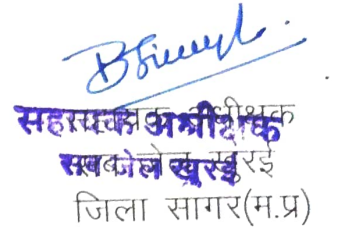 सहायक अधीक्षक
सब जेल खुरई
जिला सागर(म.प्र)